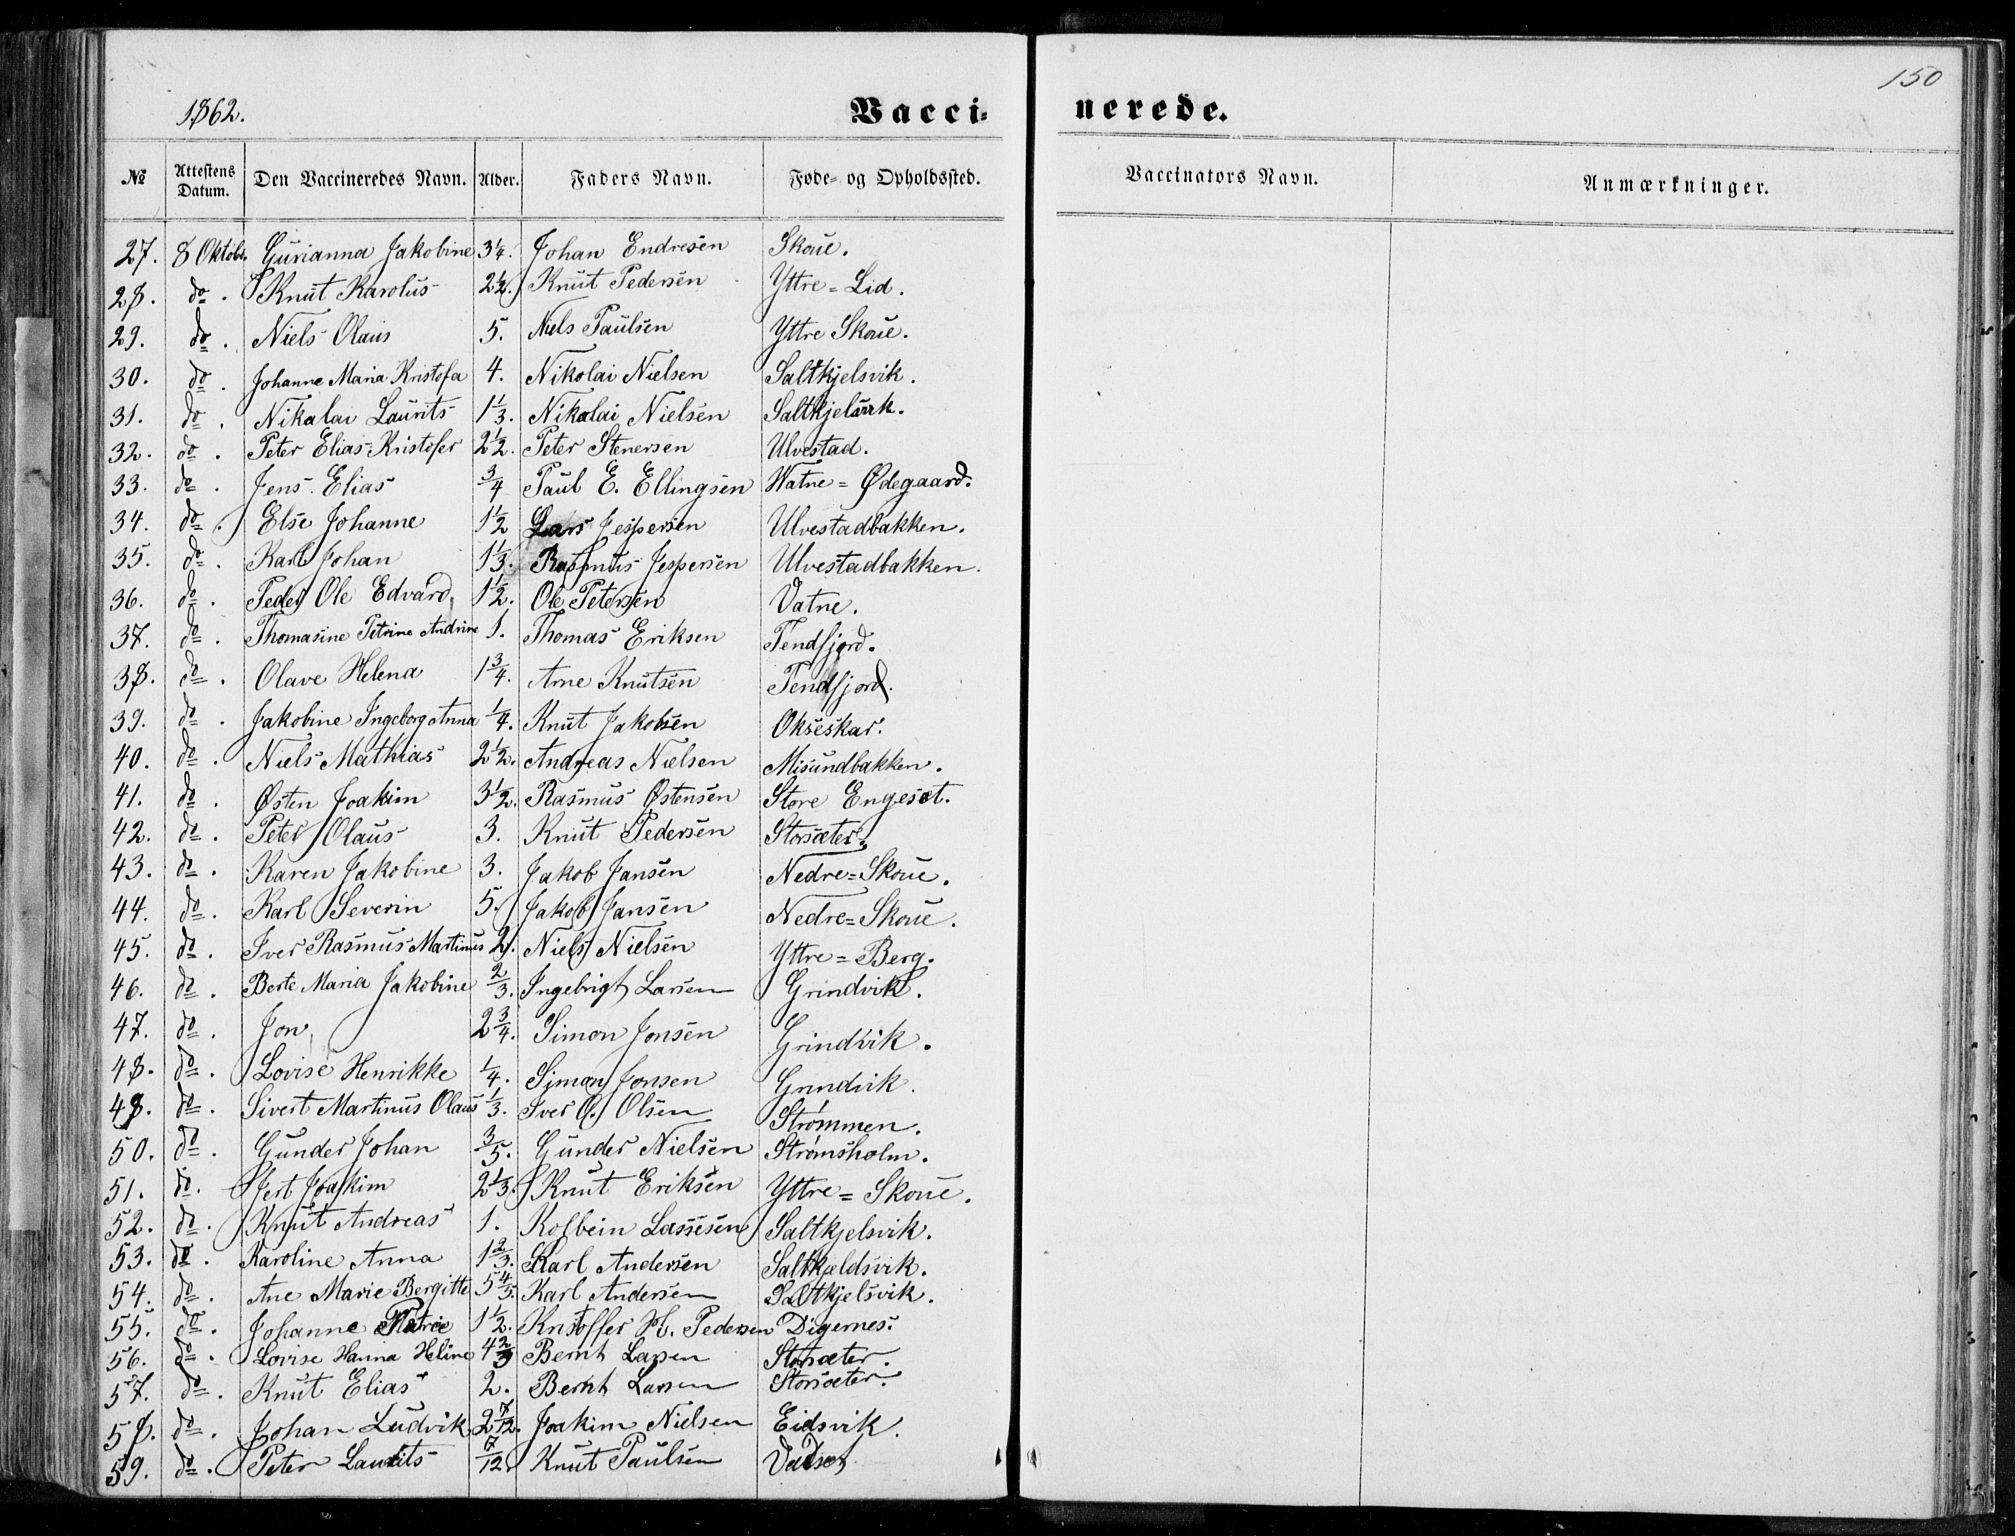 150
1862.
Vacci-
nerede.
№ Attestens Datum. Den Vaccineredes Navn. Alder. Faders Navn. Føde- og Opholdssted. Vaccinators Navn. Anmærkninger.
27. 8 Oktobr. Gurianna Jakobine 3 1/4. Johan Endresen Skoue.
28. do. Knut Karolus 2 1/2. Knut Pedersen Yttre=Lid.
29. do. Niels Olaus 5. Niels Paulsen Yttre Skoue.
30. do. Johanne Maria Kristofa 4. Nikolai Nielsen Saltkjelsvik.
31. do. Nikolai Laurits 1 1/3. Nikolai Nielsen Saltkjelsvik.
32. do. Peter Elias Kristofer 2 1/2. Peter Stenersen Ulvestad.
33. do. Jens Elias 3/4 Paul E. Ellingsen Watne=Ødegaard.
34. do. Else Johanne 1 1/2 Lars Jespersen Ulvestadbakken.
35. do. Karl Johan 1 1/3. Rasmus Jespersen Ulvestadbakken.
36. do. Peder Ole Edvard 1 1/2. Ole Petersen Vatne.
37. do. Thomasine Petrine Andrine 1. Thomas Eriksen Tendfjord.
38. do. Olave Helena 1 3/4. Arne Knutsen Tendfjord.
39. do. Jakobine Ingeborg Anna 1/4. Knut Jakobsen Okseskar.
40. do. Niels Mathias 2 1/2. Andreas Nielsen Misundbakken.
41. do. Østen Joakim 3 1/2. Rasmus Østensen Store Engeset.
42. do. Peter Olaus 3. Knut Pedersen Storsæter.
43. do. Karen Jakobine 3. Jakob Jansen Nedre=Skoue.
44. do. Karl Severin 5. Jakob Jansen Nedre=Skoue.
45. do. Iver Rasmus Martinus 2. Niels Nielsen Yttre=Berg.
46. do. Berte Maria Jakobine 2/3. Ingebrigt Larsen Grindvik.
47. do. Jon 2 3/4. Simon Jonsen Grindvik.
48. do. Lovise Henrikke 1/4. Simon Jonsen Grindvik.
49. do. Sivert Martinus Olaus 1/3. Iver O. Olsen Strømmen.
50. do. Gunder Johan 3/5. Gunder Nielsen Strømsholm.
51. do. Jert Joakim 2 1/3. Knut Eriksen Yttre=Skoue.
52. do. Knut Andreas 1. Kolbein Lassesen Saltkjelsvik.
53. do. Karoline Anna 1 2/3. Karl Andersen Saltkjeldsvik.
54. do. Ane Marie Bergitte 5 4/5. Karl Andersen Saltkjelsvik.
55. do. Johanne 1 1/2. Kristoffer H. Pedersen Digernes.
56. do. Lovise Hanna Heline 4 2/3 Bernt Larsen Storsæter.
57. do. Knut Elias 2. Bernt Larsen Storsæter.
58. do. Johan Ludvik 2 7/12. Joakim Nielsen Eidsvik.
59. do. Peter Laurits 7/12 Knut Paulsen